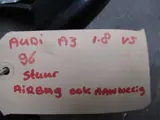 Audi A3 1.8 V5
96
Stuur
AIRBAG ook AANWEZIG